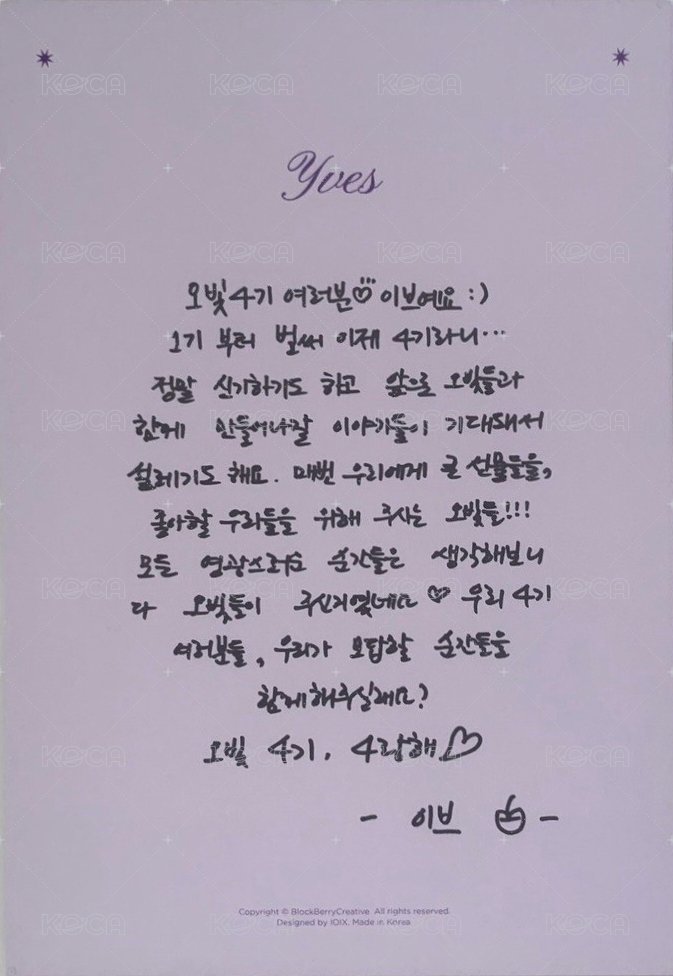 Yves
오빛 4기 여러분♡ 이브예요 :)
1기 부터 벌써 이제 4기라니...
정말 신기하기도 하고 앞으로 오빛들과
함께 만들어나갈 이야기들이 기대돼서
설레기도 해요. 매번 우리에게 큰 선물들을,
좋아할 우리들을 위해 주시는 오빛들!!!
모든 영광스러운 순간들은 생각해보니
다 오빛들이 주신거였네요 ♡ 우리 4기
여러분들, 우리가 보답할 순간들을
함께해주실래요?
오빛 4기, 4랑해♡
- 이브 -
Copyright © BlockBerryCreative. All rights reserved.
Designed by IOIX. Made in Korea
KOCA